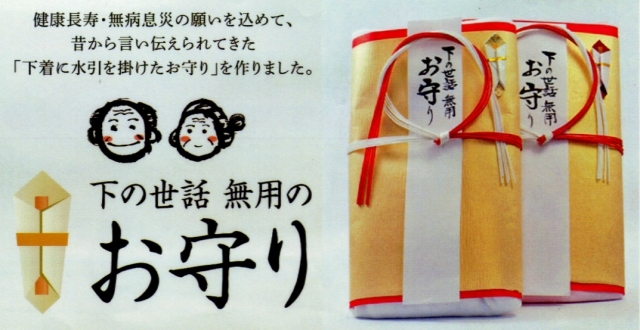 健康長寿・無病息災の願いを込めて、
昔から言い伝えられてきた
「下着に水引を掛けたお守り」を作りました。
下の世話 無用の
お守り
下の世話 無用
お守り
下の世話 無用
お守り